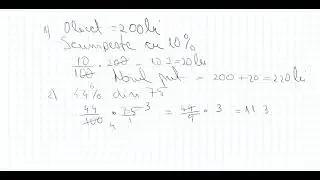 1) Obiect = 200 lei
Scumpește cu 10%
10/100 · 200 = 10 · 2 = 20 lei
Noul preț = 200 + 20 = 220 lei
2) 44% din 75
44/100 · 75 3 = 44/4 · 3 = 11 3